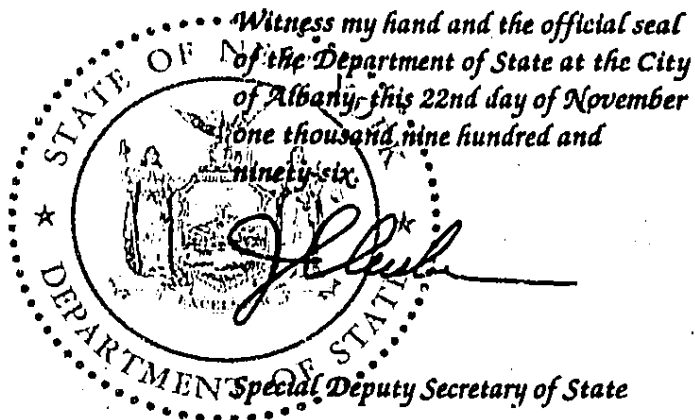 Witness my hand and the official seal
of the Department of State at the City
of Albany, this 22nd day of November
one thousand nine hundred and
ninety-six.
STATE OF NEW YORK
DEPARTMENT OF STATE
EXCELSIOR
Special Deputy Secretary of State